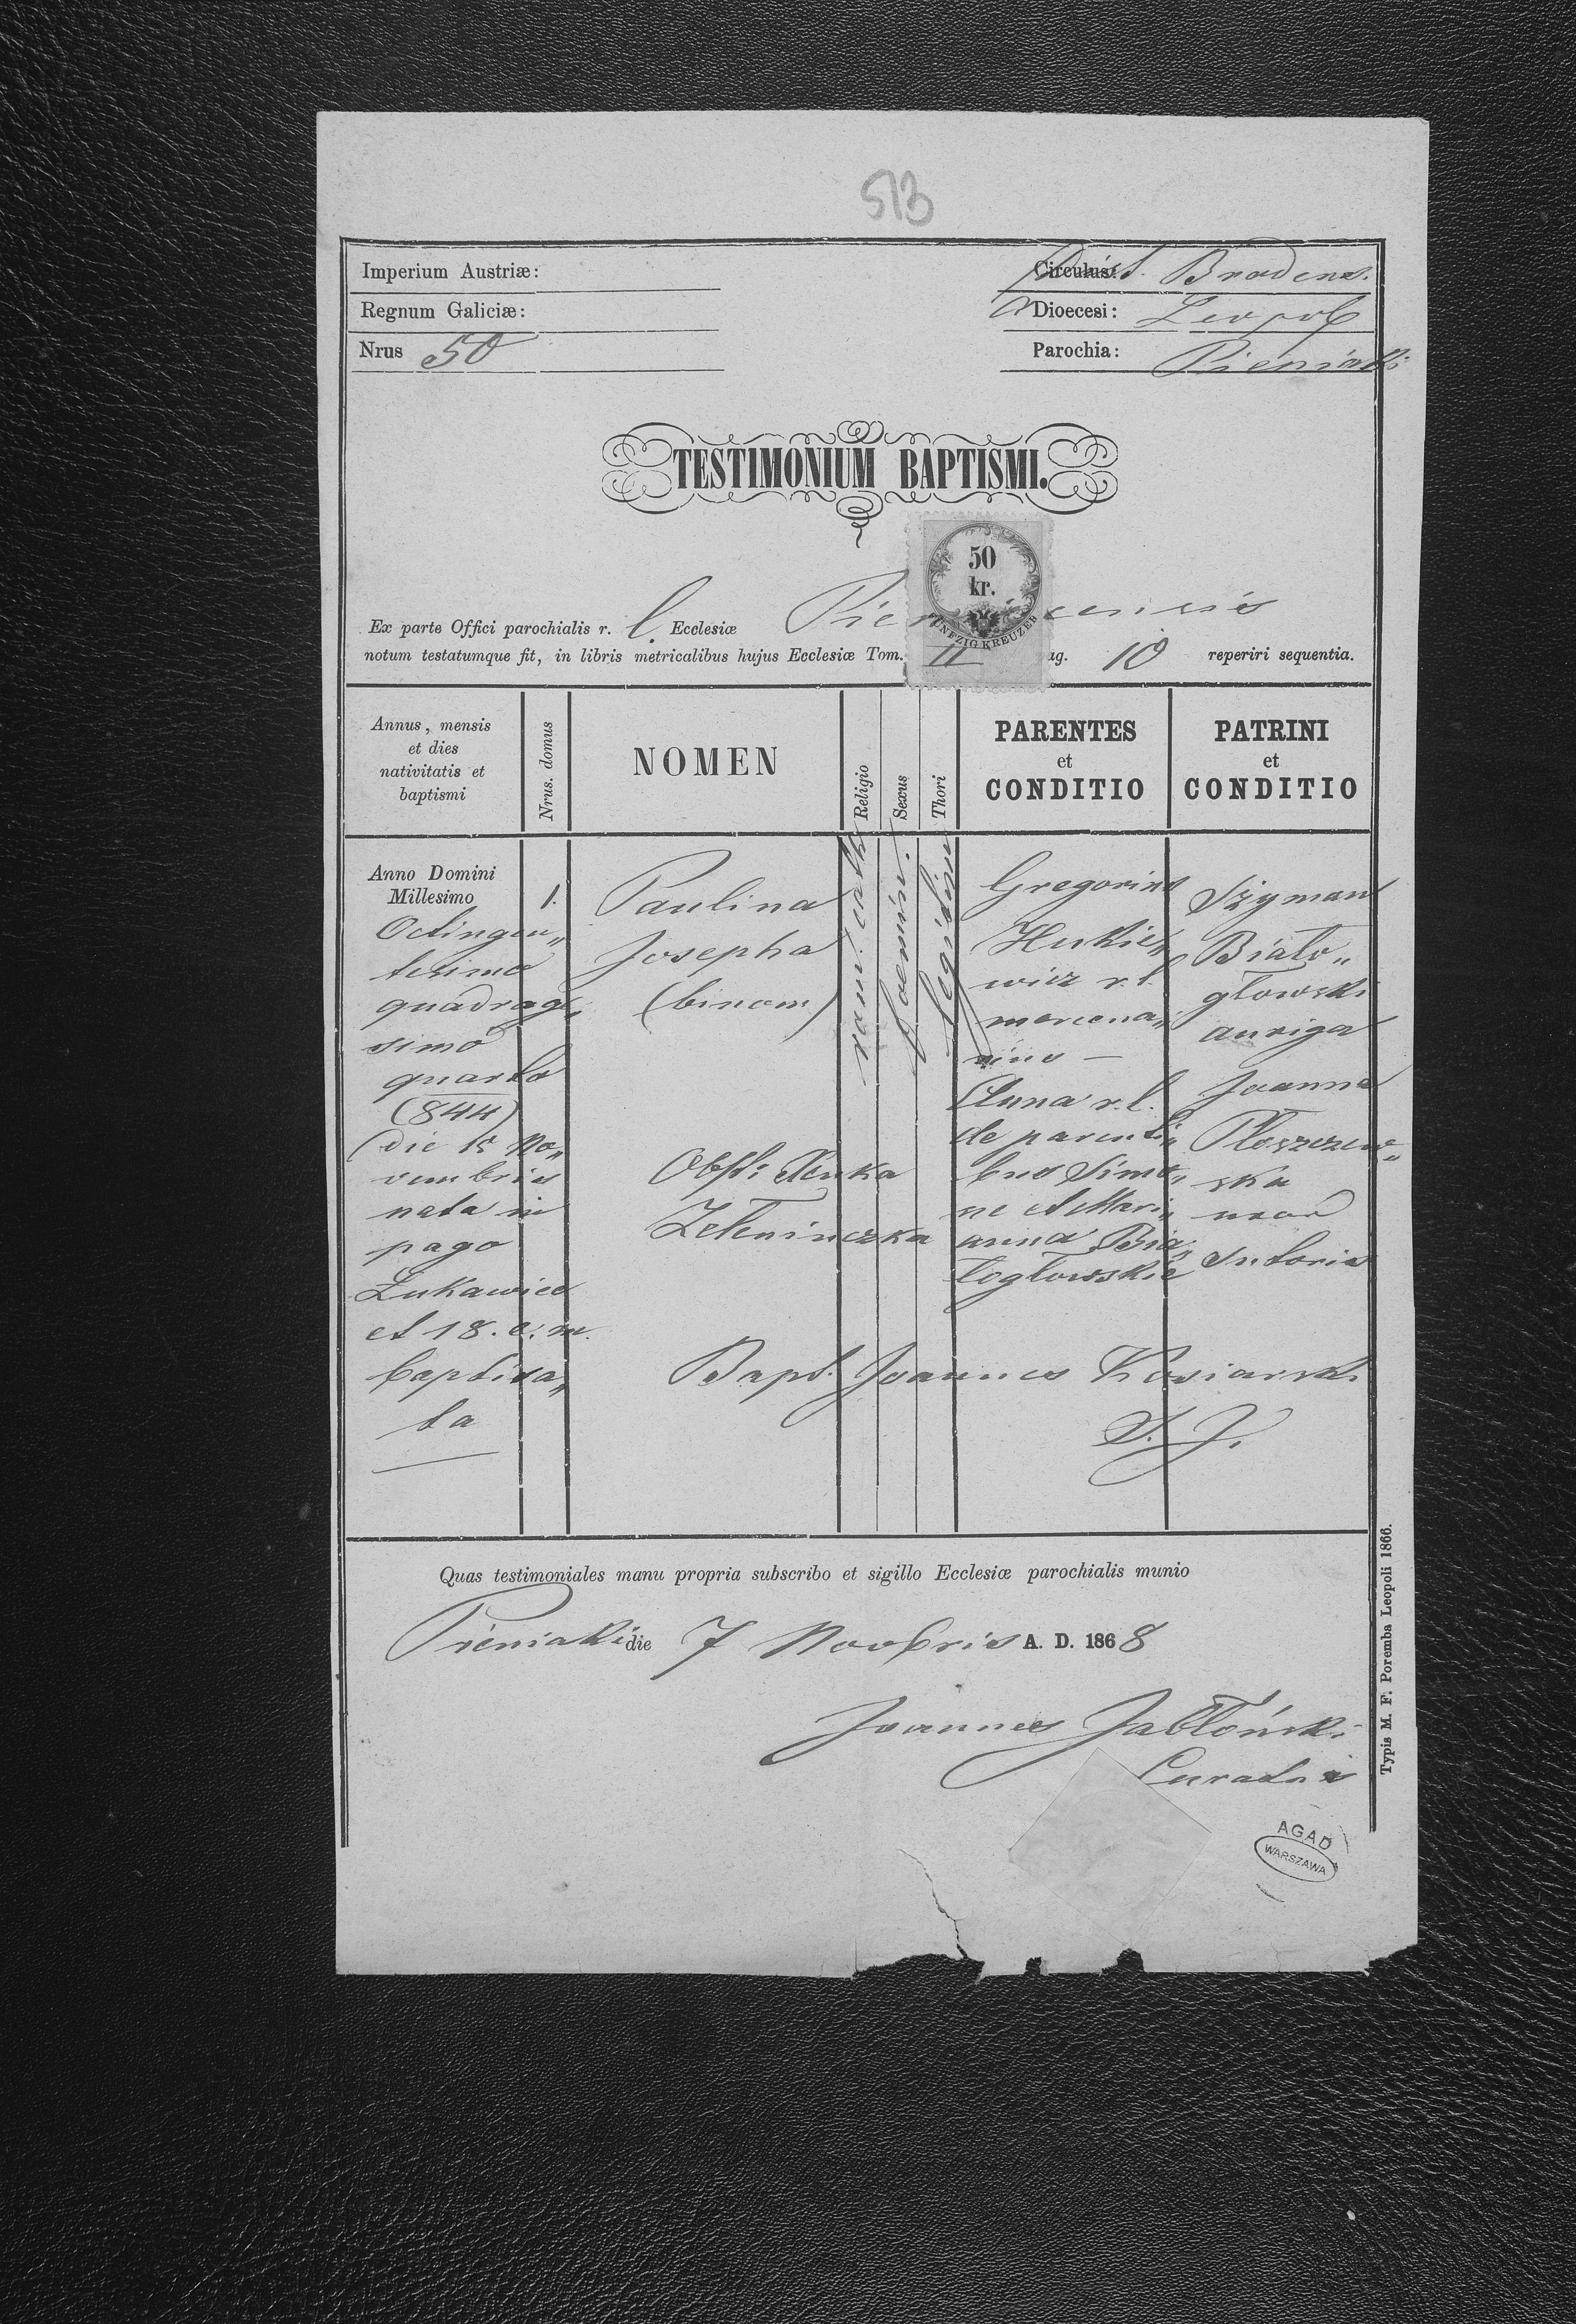 513
Imperium Austriæ:
Regnum Galiciæ:
Nrus 50
Circulus: Distr. Brodens.
A Dioecesi: Leopol
Parochia: Pieniaki
TESTIMONIUM BAPTISMI.
50
kr.
FÜNFZIG KREUZER
Ex parte Offici parochialis r. l. Ecclesiæ Pieniacensis
notum testatumque fit, in libris metricalibus hujus Ecclesiæ Tom. II ag. 10 reperiri sequentia.
Annus, mensis
et dies
nativitatis et
baptismi
Nrus. domus
NOMEN
Religio
Sexus
Thori
PARENTES
et
CONDITIO
PATRINI
et
CONDITIO
Anno Domini
Millesimo
Octingen„
tesimo
quadrage„
simo
quarto
(844)
(die 15 No„
vembris
nata in
pago
Łukawiec
et 18. e. m.
baptisa„
ta
1.
Paulina
Josepha
(binom)
Obst: Xenka
Zeleniuczka
rom. cath
foemin.
legitim
Gregorius
Hukie„
wicz r. l.
mercena„
rius —
Anna r. l.
de parenti„
bus Simo„
ne et Mari„
anna Bia„
łogłowskie
Szyman
Biało„
głowski
auriga
Joanna
Płoszczew„
ska
uxor
sutoris
Bapt. Joannes Kosiarski
S. J.
Quas testimoniales manu propria subscribo et sigillo Ecclesiæ parochialis munio
Pieniaki die 7 Novbris A. D. 1868
Joannes Jabłoński
Curatus
AGAD
WARSZAWA
Typis M. F. Poremba Leopoli 1866.